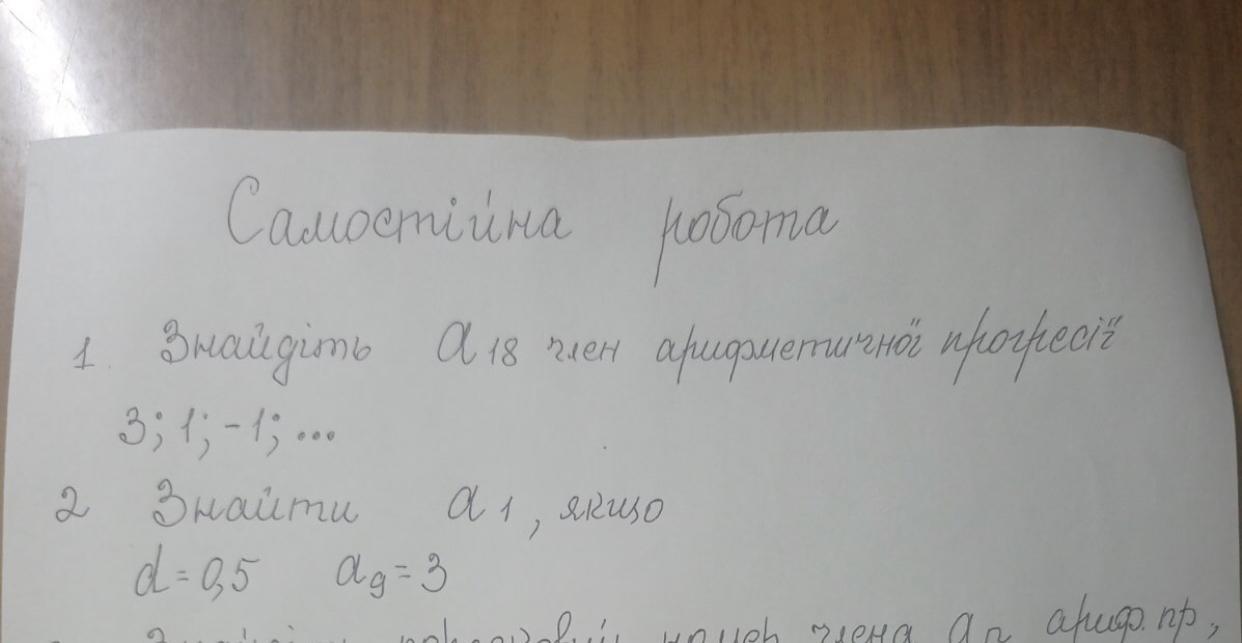 Самостійна робота
1. Знайдіть a18 член арифметичної прогресії
3; 1; -1; ...
2 Знайти a1, якщо
d = 0,5 a9 = 3
номер члена an ариф. пр,